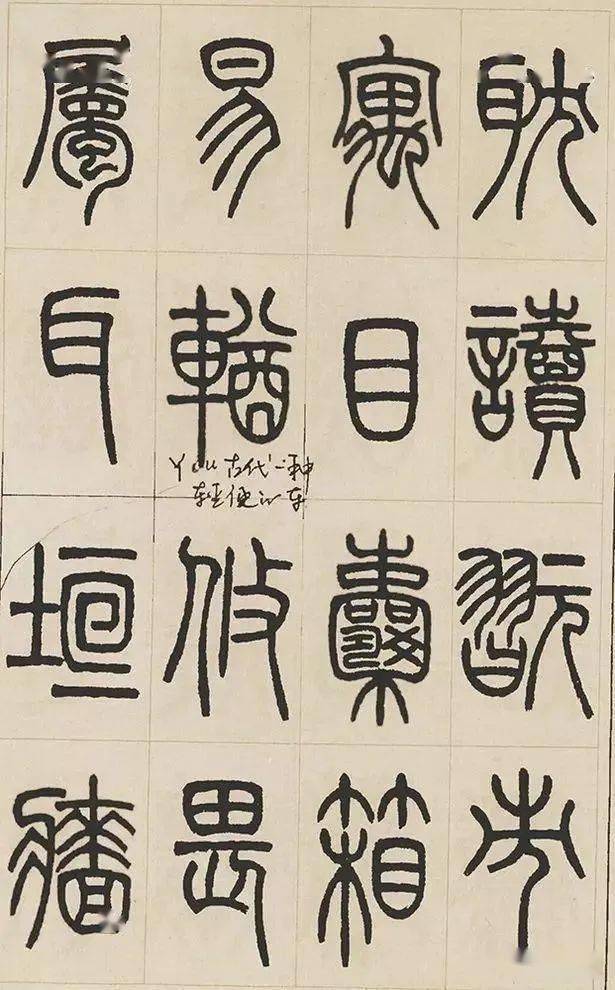 耽讀翫市
寓目囊箱
易輶攸畏
屬耳垣牆
you 古代一种
轻便的车